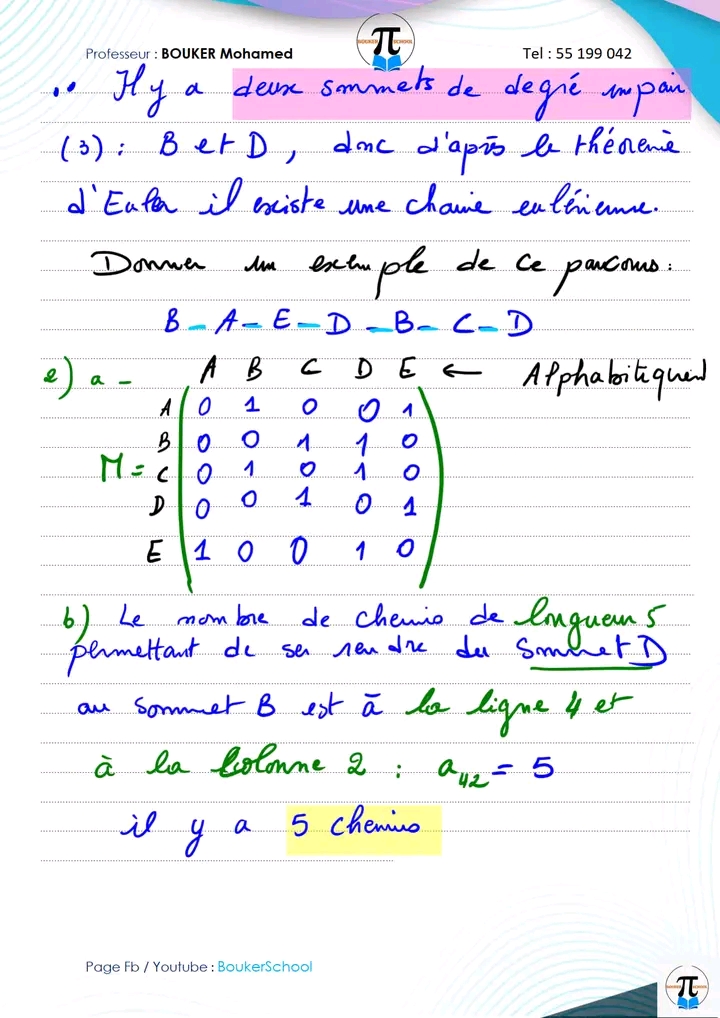 Professeur : BOUKER Mohamed
BOUKER SCHOOL
π
Tel : 55 199 042
.. Il y a deux sommets de degré impair
(3) : B et D, donc d'après le théorème
d'Euler il existe une chaine eulérienne.
Donner un exemple de ce parcours :
B - A - E - D - B - C - D
2) a - A B C D E ← Alphabitiquent
A 0 1 0 0 1
B 0 0 1 1 0
M = C 0 1 0 1 0
D 0 0 1 0 1
E 1 0 0 1 0
b) Le nombre de chemis de longueur 5
permettant de se rendre du Sommet D
au sommet B est à la ligne 4 et
à la colonne 2 : a42 = 5
il y a 5 chemins
Page Fb / Youtube : BoukerSchool
π